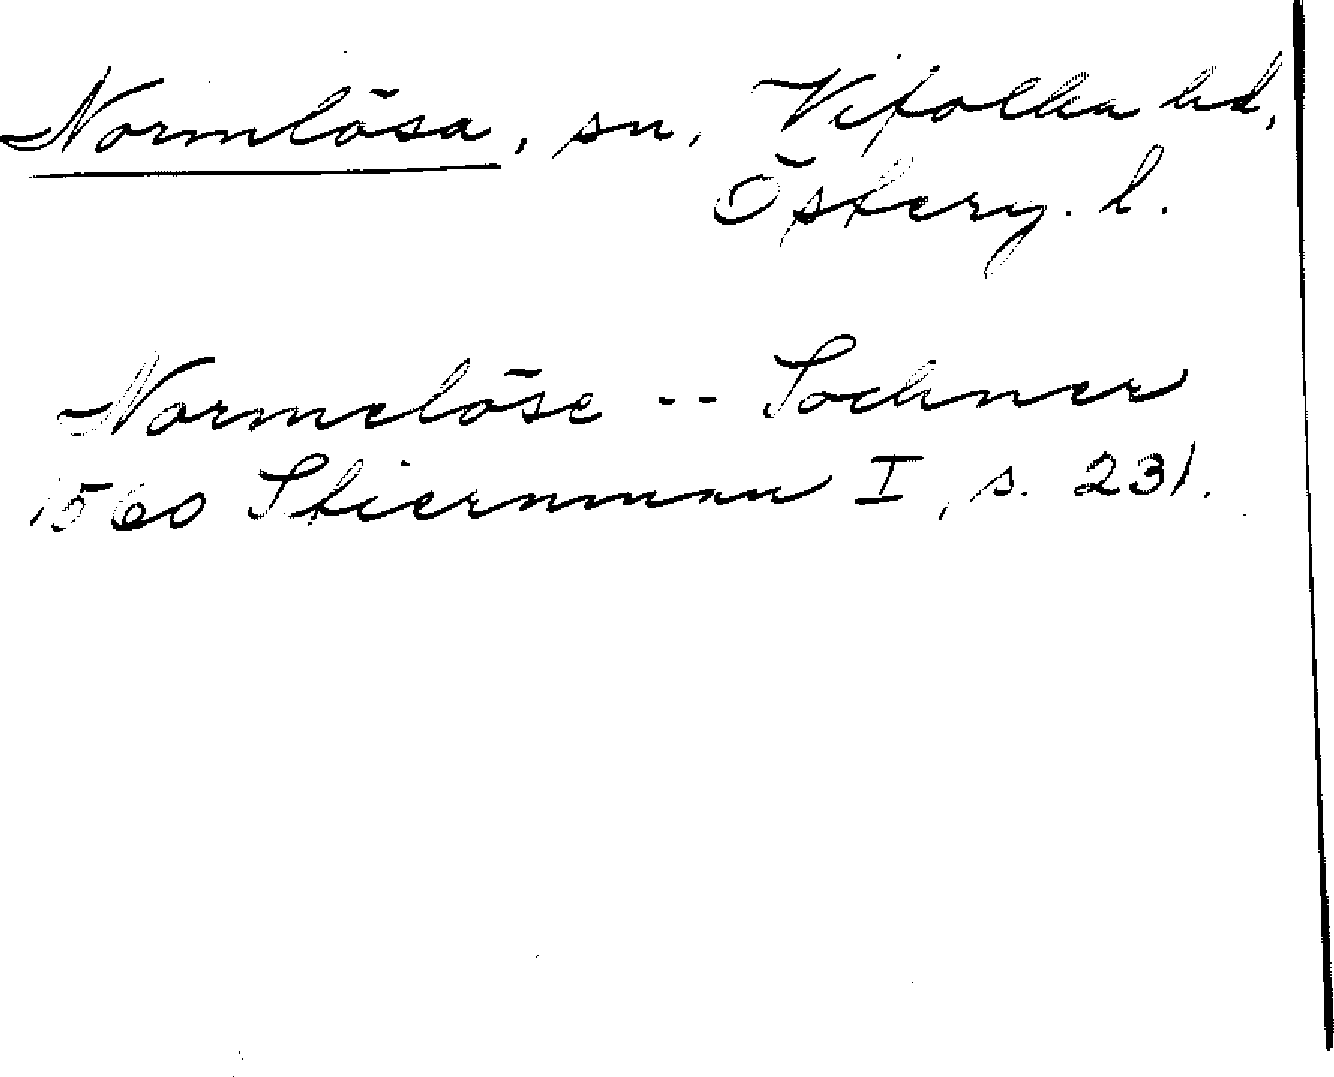 Normlösa, sn, Vifolka hd,
Österg. l.
Normelöse -- Sochner
1560 Stiernman I, s. 231.